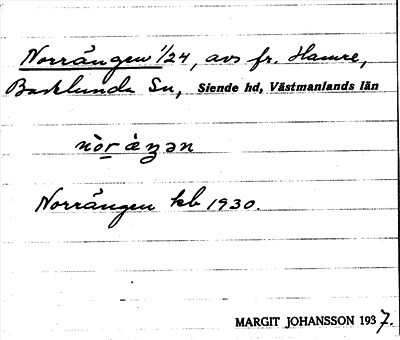 Norrängen 1/24, avs fr. Hamre,
Barklunda Sn, Siende hd, Västmanlands län
nòr àŋən
Norrängen kb 1930.
MARGIT JOHANSSON 1937.